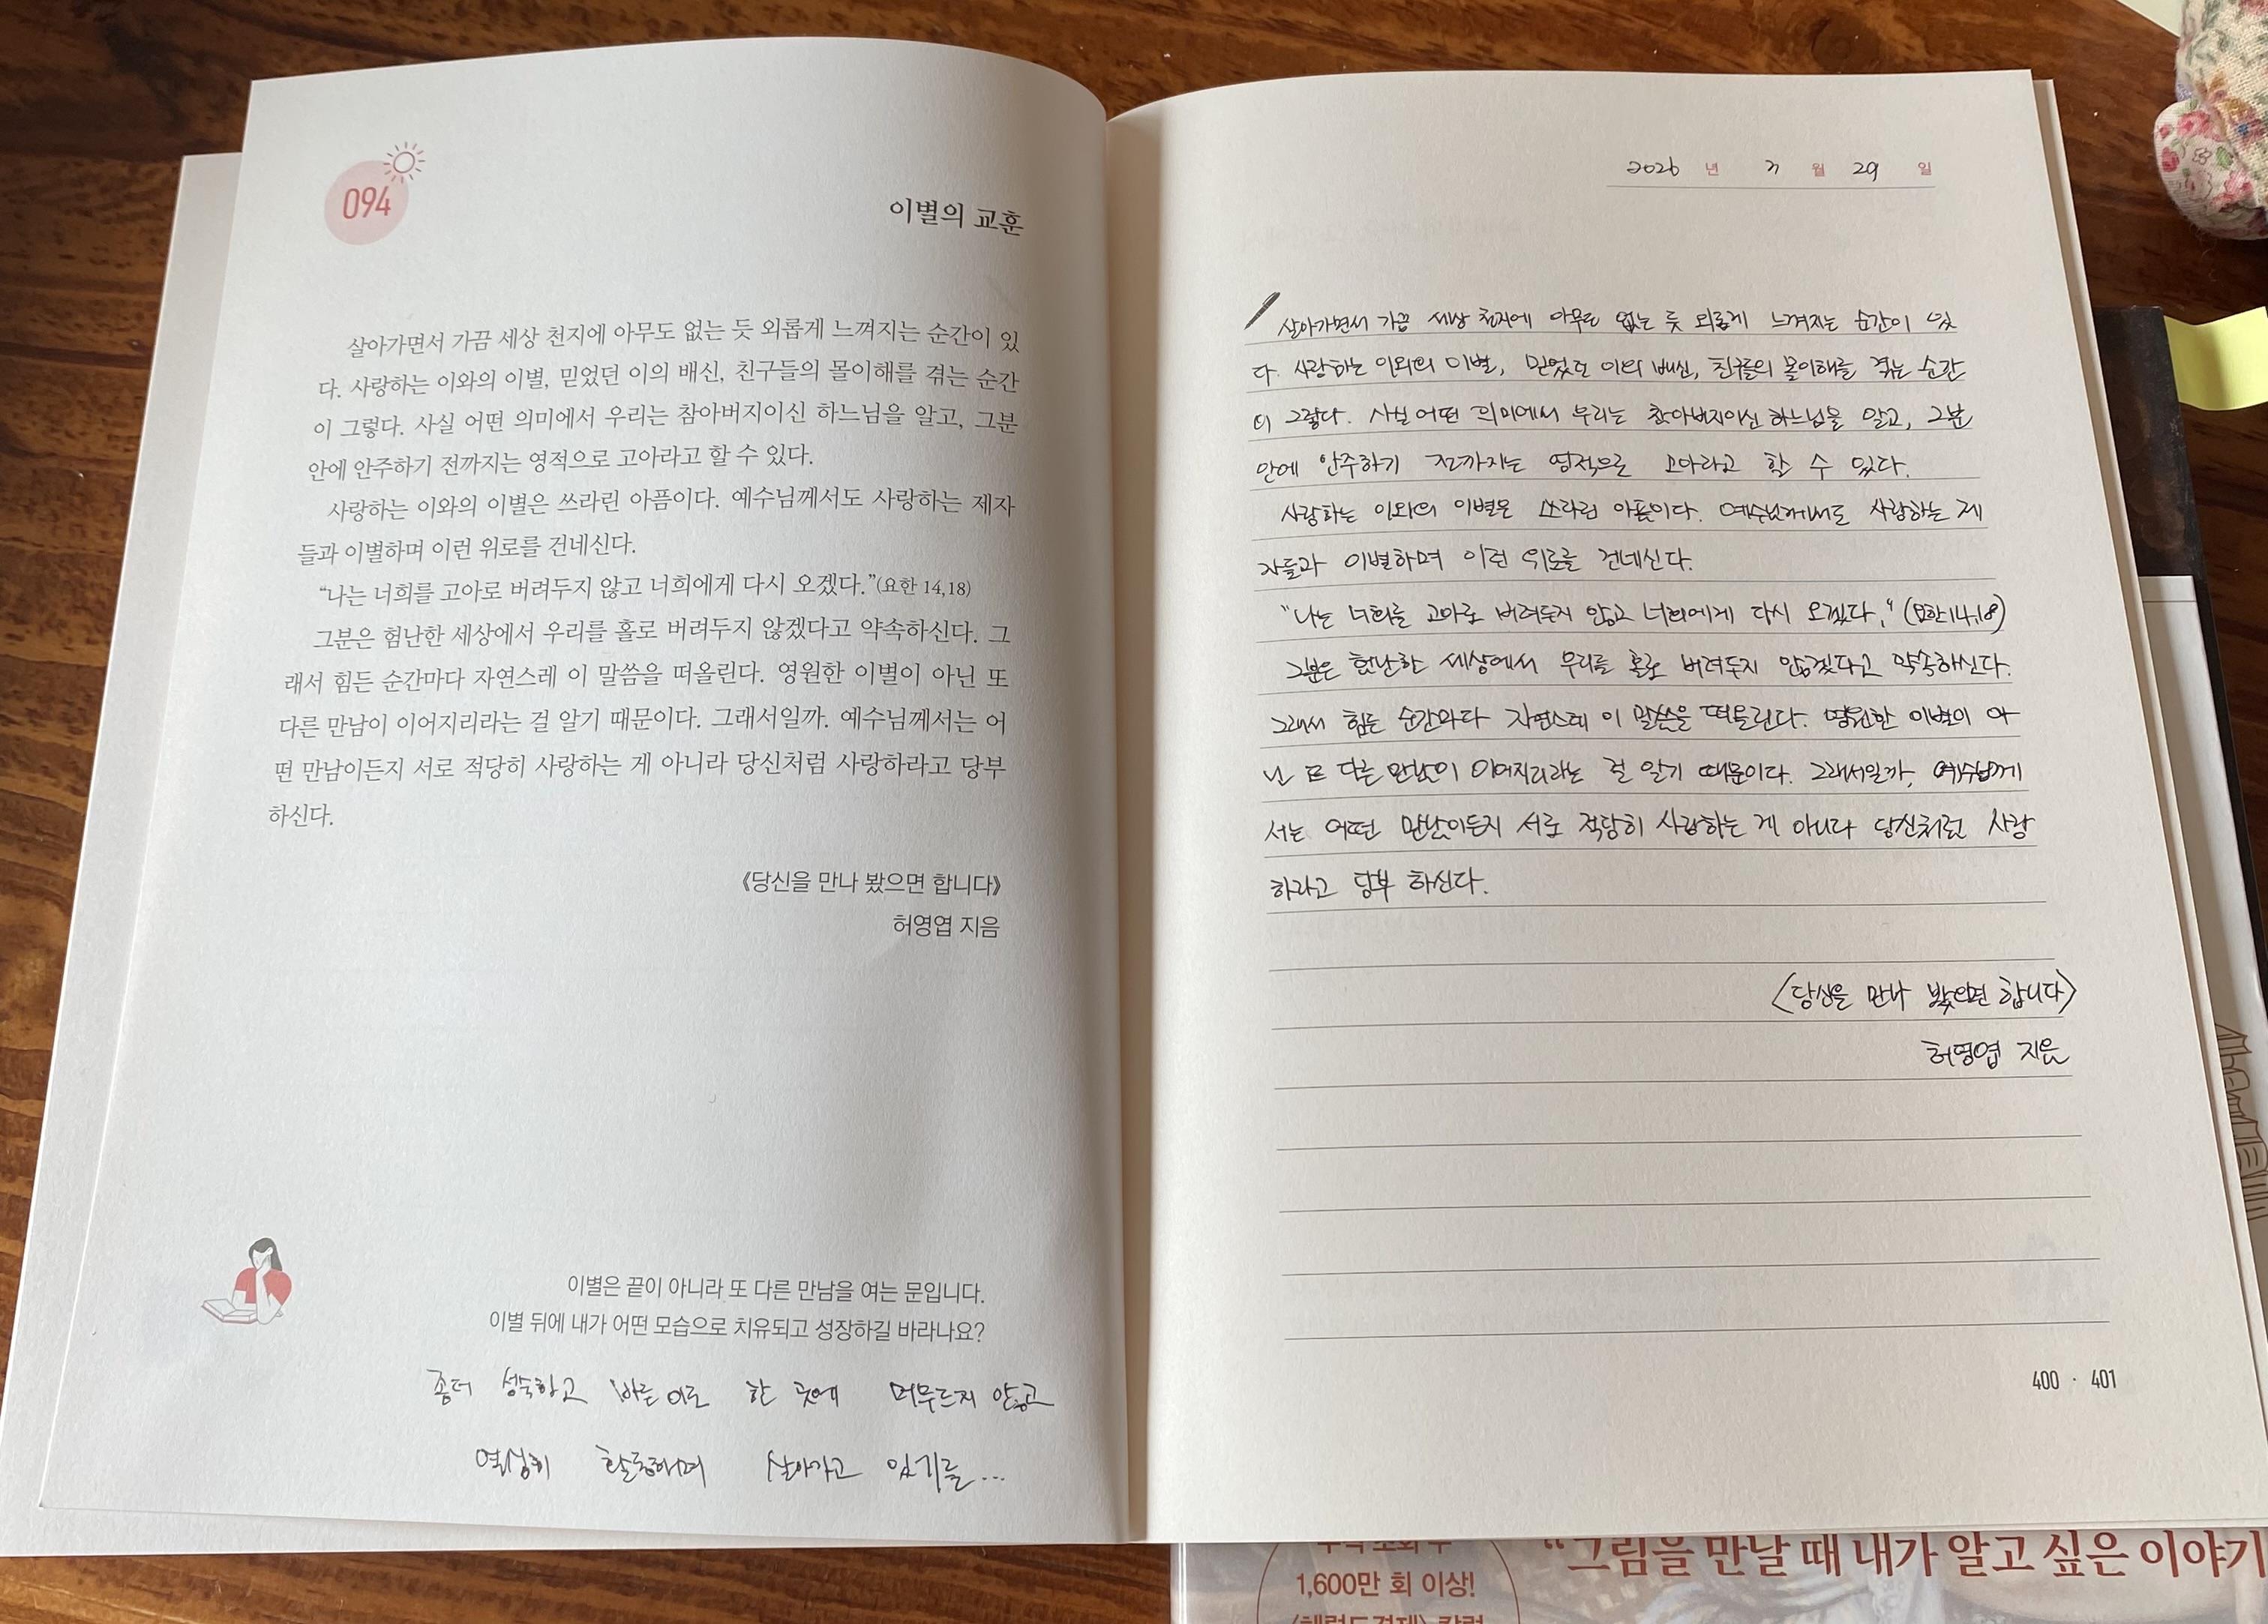 094
이별의 교훈
살아가면서 가끔 세상 천지에 아무도 없는 듯 외롭게 느껴지는 순간이 있
다. 사랑하는 이와의 이별, 믿었던 이의 배신, 친구들의 몰이해를 겪는 순간
이 그렇다. 사실 어떤 의미에서 우리는 참아버지이신 하느님을 알고, 그분
안에 안주하기 전까지는 영적으로 고아라고 할 수 있다.
사랑하는 이와의 이별은 쓰라린 아픔이다. 예수님께서도 사랑하는 제자
들과 이별하며 이런 위로를 건네신다.
“나는 너희를 고아로 버려두지 않고 너희에게 다시 오겠다.”(요한 14,18)
그분은 험난한 세상에서 우리를 홀로 버려두지 않겠다고 약속하신다. 그
래서 힘든 순간마다 자연스레 이 말씀을 떠올린다. 영원한 이별이 아닌 또
다른 만남이 이어지리라는 걸 알기 때문이다. 그래서일까. 예수님께서는 어
떤 만남이든지 서로 적당히 사랑하는 게 아니라 당신처럼 사랑하라고 당부
하신다.
《당신을 만나 봤으면 합니다》
허영엽 지음
이별은 끝이 아니라 또 다른 만남을 여는 문입니다.
이별 뒤에 내가 어떤 모습으로 치유되고 성장하길 바라나요?
좀더 성숙하고 바른 이로 한 곳에 머무르지 않고
열심히 활동하며 살아가고 있기를...
2026 년 7 월 29 일
살아가면서 가끔 세상 천지에 아무도 없는 듯 외롭게 느껴지는 순간이 있
다. 사랑하는 이와의 이별, 믿었던 이의 배신, 친구들의 몰이해를 겪는 순간
이 그렇다. 사실 어떤 의미에서 우리는 참아버지이신 하느님을 알고, 그분
안에 안주하기 전까지는 영적으로 고아라고 할 수 있다.
사랑하는 이와의 이별은 쓰라린 아픔이다. 예수님께서도 사랑하는 제
자들과 이별하며 이런 위로를 건네신다.
“나는 너희를 고아로 버려두지 않고 너희에게 다시 오겠다.“ (요한14,18)
그분은 험난한 세상에서 우리를 홀로 버려두지 않겠다고 약속하신다.
그래서 힘든 순간마다 자연스레 이 말씀을 떠올린다. 영원한 이별이 아
닌 또 다른 만남이 이어지리라는 걸 알기 때문이다. 그래서일까, 예수님께
서는 어떤 만남이든지 서로 적당히 사랑하는 게 아니라 당신처럼 사랑
하라고 당부 하신다.
〈당신을 만나 봤으면 합니다〉
허영엽 지음
400 · 401
“그림을 만날 때 내가 알고 싶은 이야기
1,600만 회 이상!